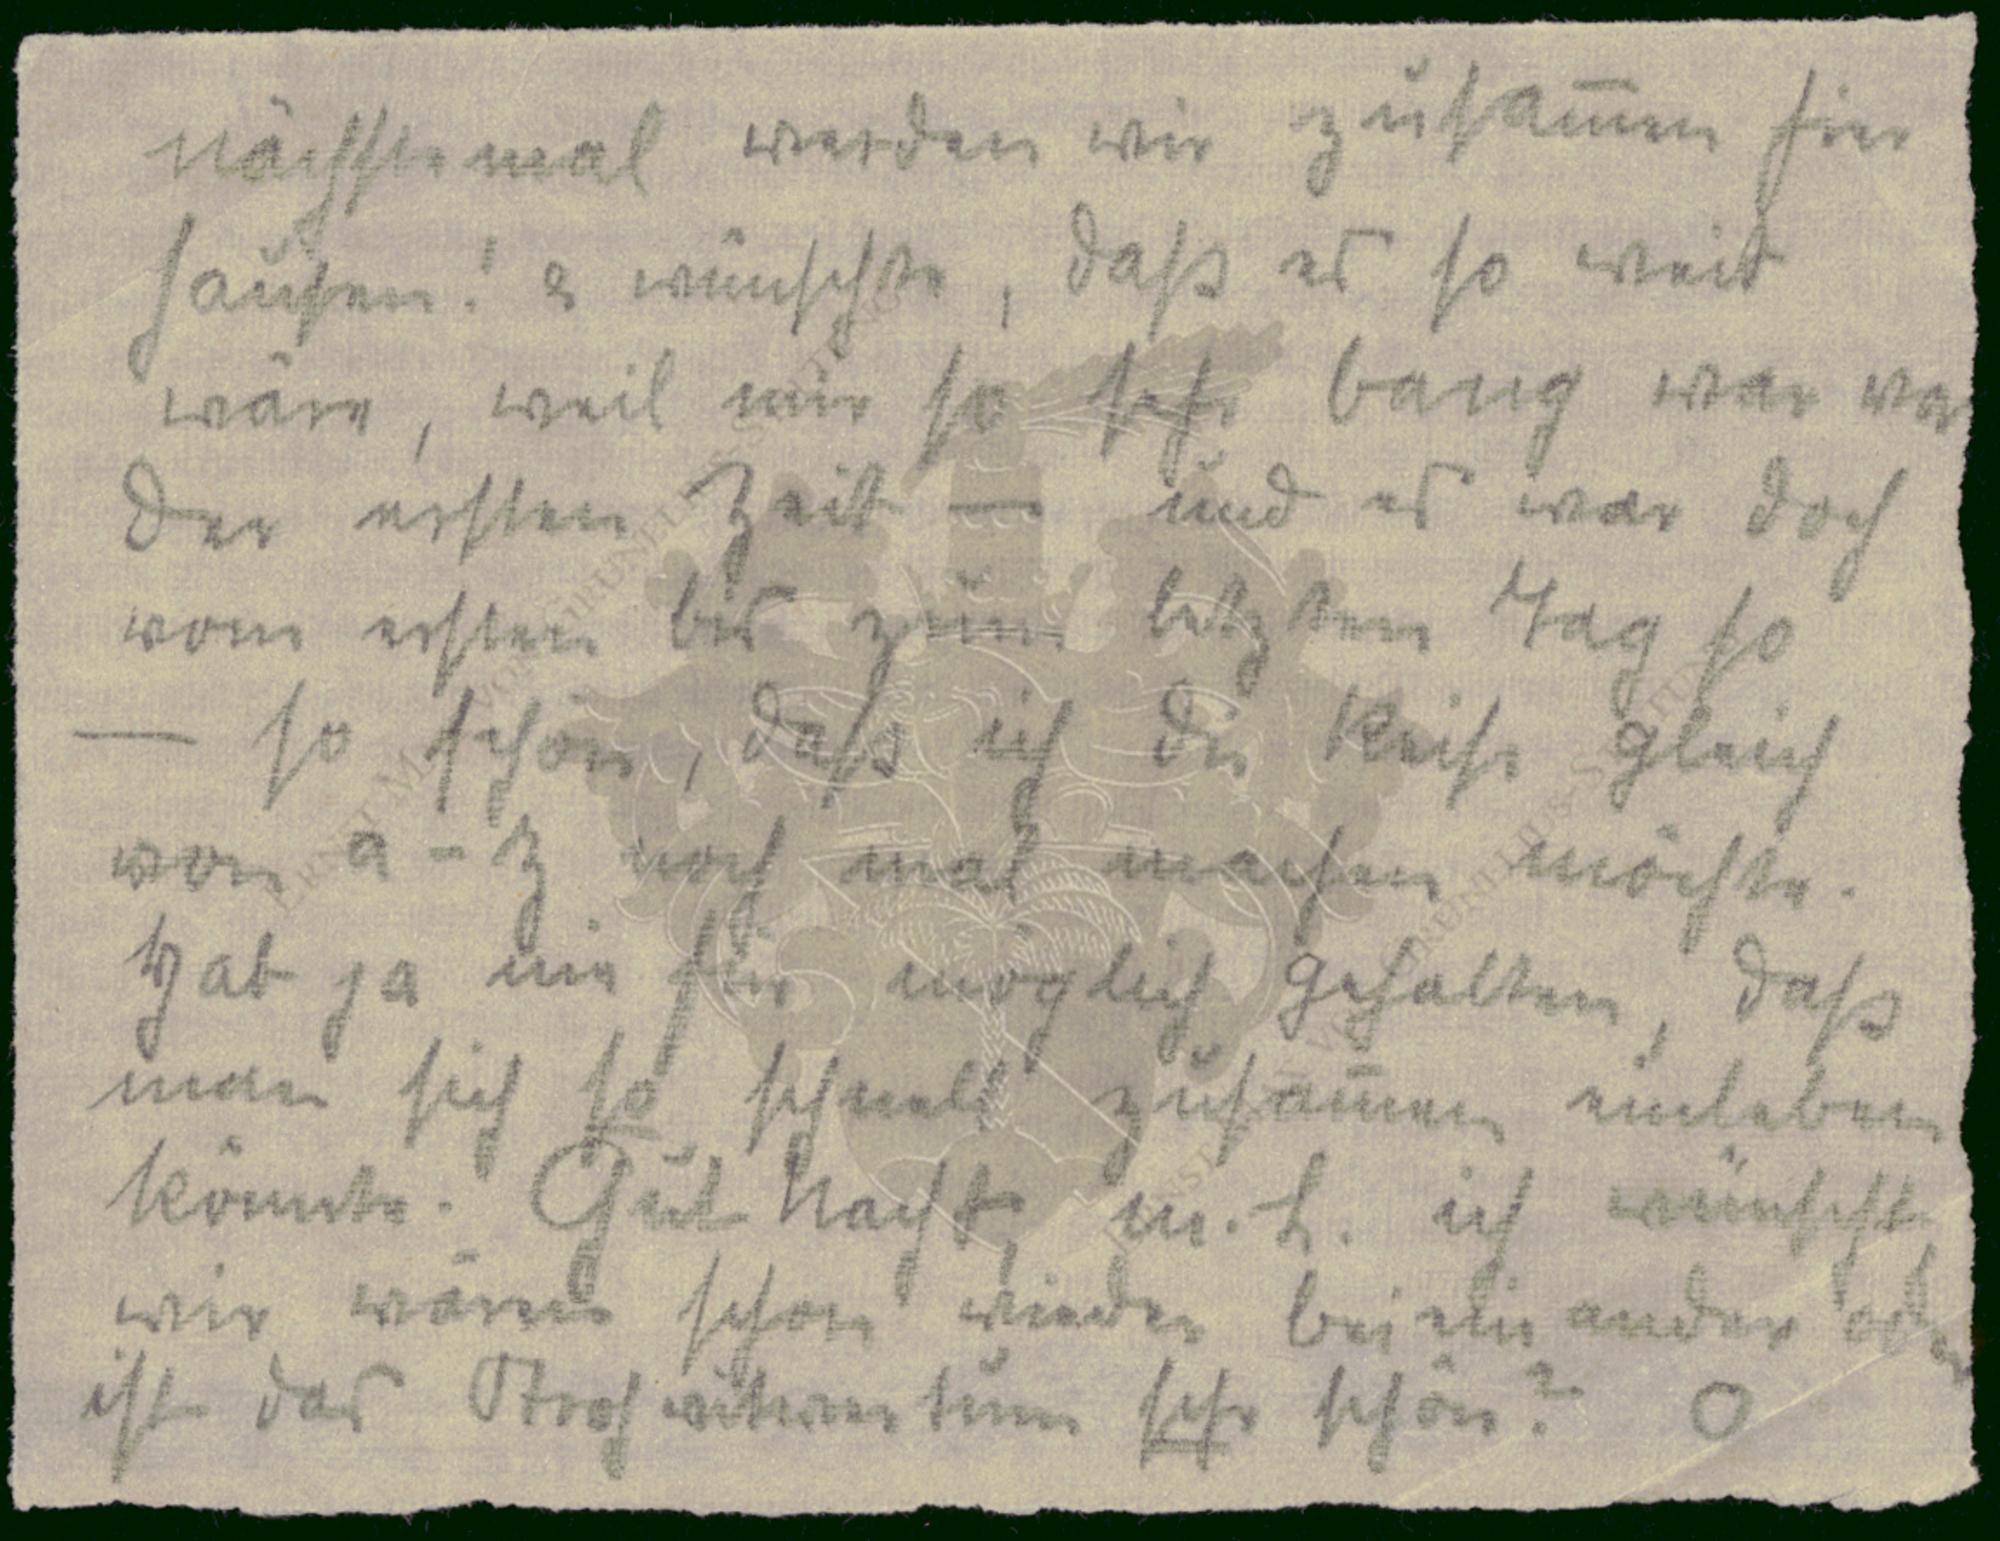 nächstemal werden wir zusam̅en hier
hausen! & wünschte, daß es so weit
wäre, weil mir so sehr bang war vor
der ersten Zeit — und es war doch
vom ersten bis zum letzten Tag so
— so schön, daß ich die Reise gleich
von a - z noch mal machen möchte.
Hab ja nie für möglich gehalten, daß
man sich so schnell zusam̅en einleben
könnte. Gut Nacht, m. L. ich wünscht
wir wären schon wieder bei einander oder
ist das Strohwitwertum sehr schön? O